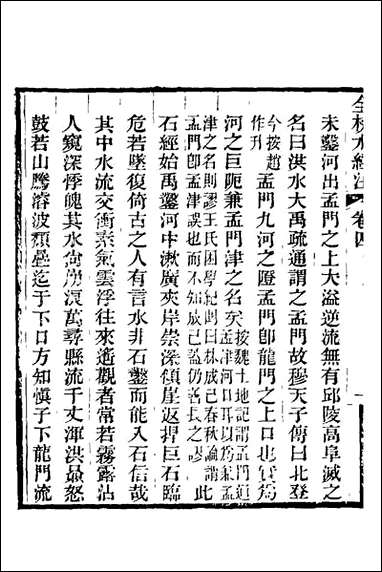 全校水經注 卷四
未鑿河出孟門之上大溢逆流無有邱陵高阜滅之
名曰洪水大禹疏通謂之孟門故穆天子傳曰北登
今按趙作升孟門九河之隥孟門卽龍門之上口也實爲
河之巨阨兼孟門津之名矣按魏土地記謂孟門孟津河口耳以爲兼孟
津之名則謬王氏困學紀聞曰林成己春秋論謂孟門卽孟津誤也而不知成己蓋仍善長之謬此
石經始禹鑿河中漱廣夾岸崇深傾崖返捍巨石臨
危若墜復倚古之人有言水非石鑿而能入石信哉
其中水流交衝素氣雲浮往來遙觀者常若霧露沾
人窺深悸魄其水尙崩浪萬尋縣流千丈渾洪贔怒
鼓若山騰濬波頹疊迄于下口方知愼子下龍門流